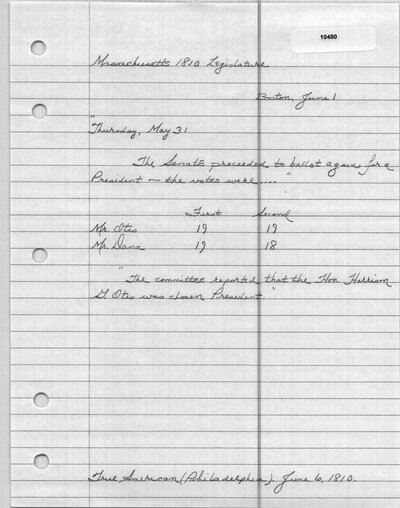 10480
Massachusetts 1810 Legislature
Boston, June 1
"
Thursday, May 31
The Senate proceeded to ballot again for a
President — the votes were.... "
First Second
Mr. Otis 19 19
Mr. Dana 19 18
"The committee reported that the Hon. Harrison
G Otis was chosen President."
True American (Philadelphia). June 6, 1810.